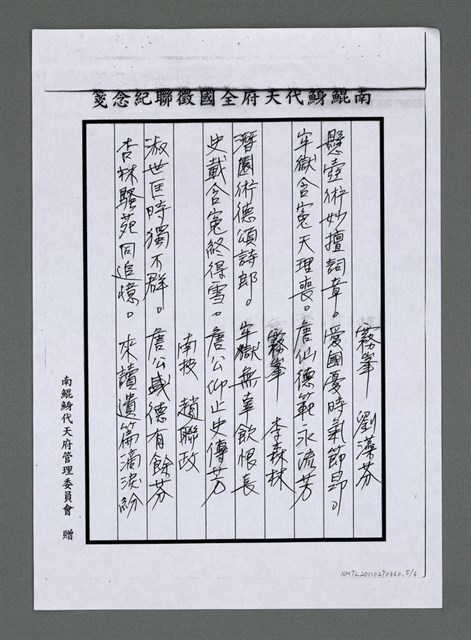 南鯤鯓代天府全國徵聯紀念箋
霧峯 劉藻芬
懸壺術妙擅詞章。愛國憂時氣節昂。
牢獄含冤天理喪。詹仙德範永流芳
霧峯 李森林
濟園術德頌詩郎。牢獄無辜飲恨長
史載含冤終得雪。詹公仰止史傳芳
南投 趙聯政
淑世匡時獨不群。詹公盛德有餘芬
杏林騷苑同追憶。來讀遺篇滴淚紛
南鯤鯓代天府管理委員會 贈
NMTL20110270360.5/6